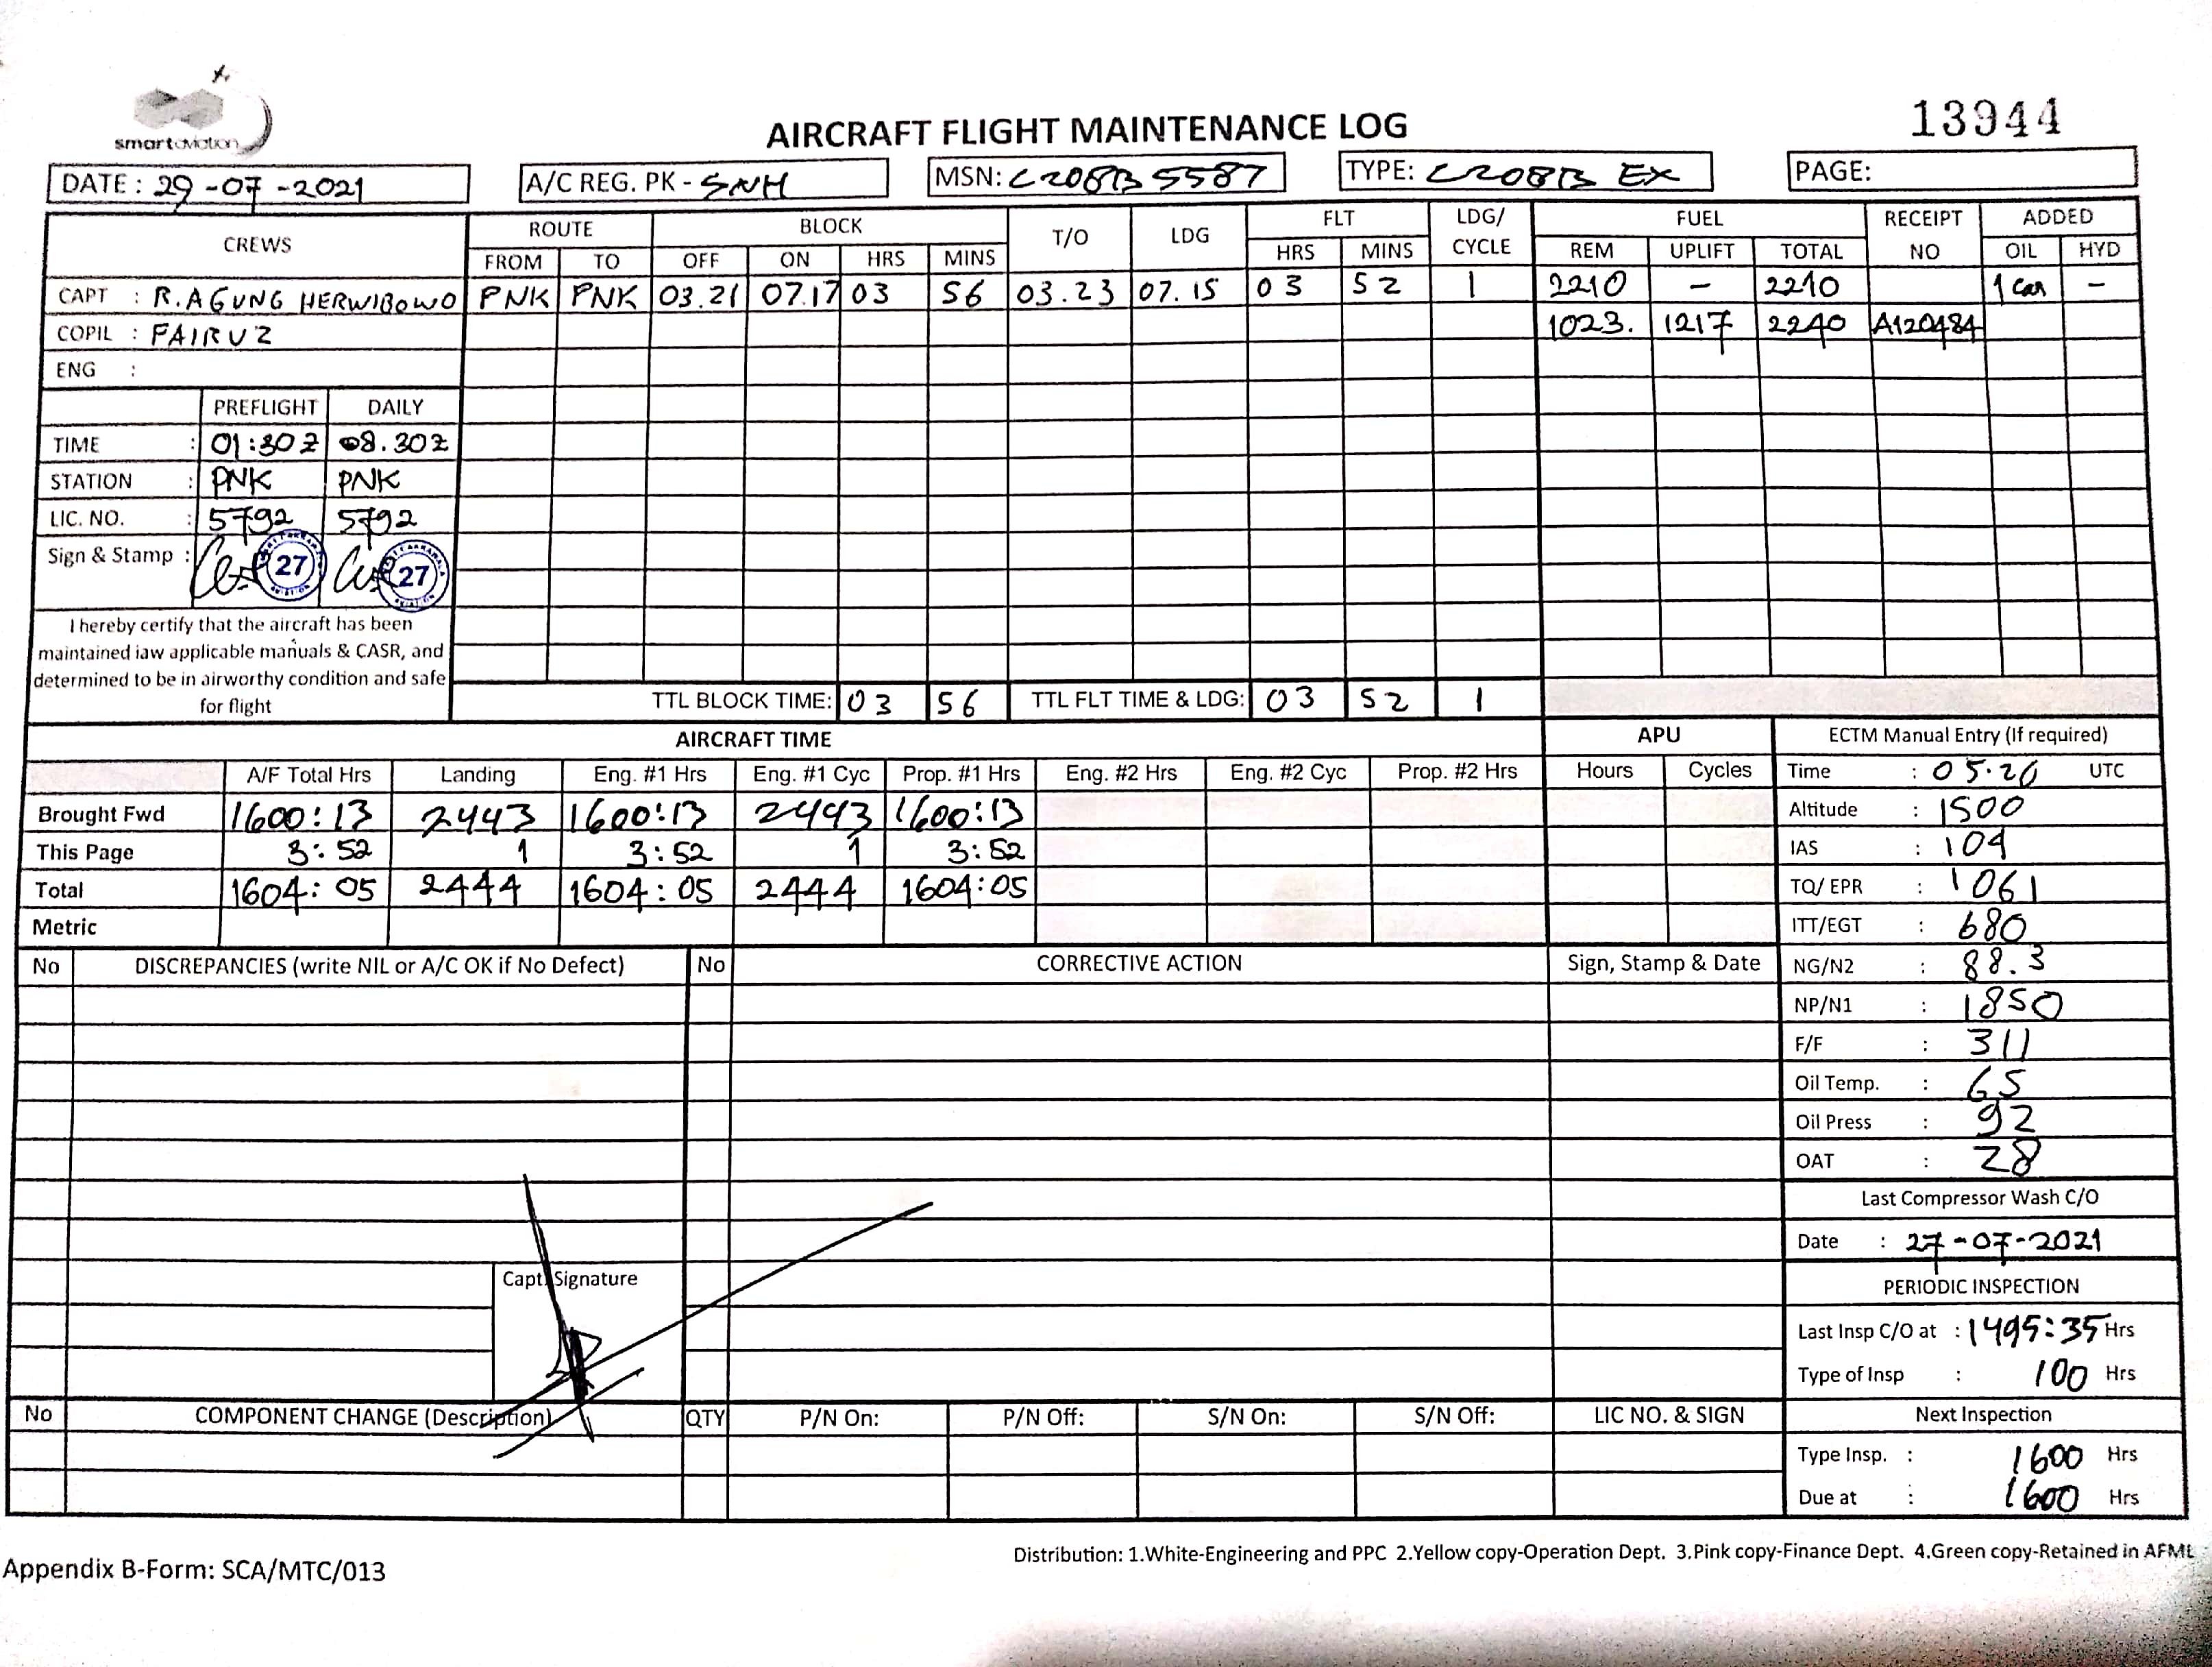 smartaviation
AIRCRAFT FLIGHT MAINTENANCE LOG
13944
DATE : 29-07-2021 A/C REG. PK - SNH MSN: C208B5587 TYPE: C208B EX PAGE:
CREWS ROUTE BLOCK T/O LDG FLT LDG/ CYCLE FUEL RECEIPT NO ADDED
FROM TO OFF ON HRS MINS HRS MINS REM UPLIFT TOTAL OIL HYD
CAPT : R.AGUNG HERWIBOWO PNK PNK 03.21 07.17 03 56 03.23 07.15 03 52 1 2210 - 2210 1 can -
COPIL : FAIRUZ 1023. 1217 2240 A120484
ENG :
PREFLIGHT DAILY
TIME : 01:30Z 08.30Z
STATION : PNK PNK
LIC. NO. : 5792 5792
Sign & Stamp : 27 27
I hereby certify that the aircraft has been
maintained iaw applicable manuals & CASR, and
determined to be in airworthy condition and safe
for flight
TTL BLOCK TIME: 03 56 TTL FLT TIME & LDG: 03 52 1
AIRCRAFT TIME APU ECTM Manual Entry (If required)
A/F Total Hrs Landing Eng. #1 Hrs Eng. #1 Cyc Prop. #1 Hrs Eng. #2 Hrs Eng. #2 Cyc Prop. #2 Hrs Hours Cycles Time : 05.20 UTC
Brought Fwd 1600:13 2443 1600:13 2443 1600:13
Altitude : 1500
This Page 3:52 1 3:52 1 3:52
IAS : 104
Total 1604:05 2444 1604:05 2444 1604:05
TQ/ EPR : 1061
Metric
ITT/EGT : 680
No DISCREPANCIES (write NIL or A/C OK if No Defect) No CORRECTIVE ACTION Sign, Stamp & Date
NG/N2 : 88.3
NP/N1 : 1850
F/F : 311
Oil Temp. : 65
Oil Press : 92
OAT : 28
Last Compressor Wash C/O
Date : 27-07-2021
Capt. Signature
PERIODIC INSPECTION
Last Insp C/O at : 1495:35 Hrs
Type of Insp : 100 Hrs
No COMPONENT CHANGE (Description) QTY P/N On: P/N Off: S/N On: S/N Off: LIC NO. & SIGN
Next Inspection
Type Insp. : 1600 Hrs
Due at : 1600 Hrs
Appendix B-Form: SCA/MTC/013
Distribution: 1.White-Engineering and PPC 2.Yellow copy-Operation Dept. 3.Pink copy-Finance Dept. 4.Green copy-Retained in AFML